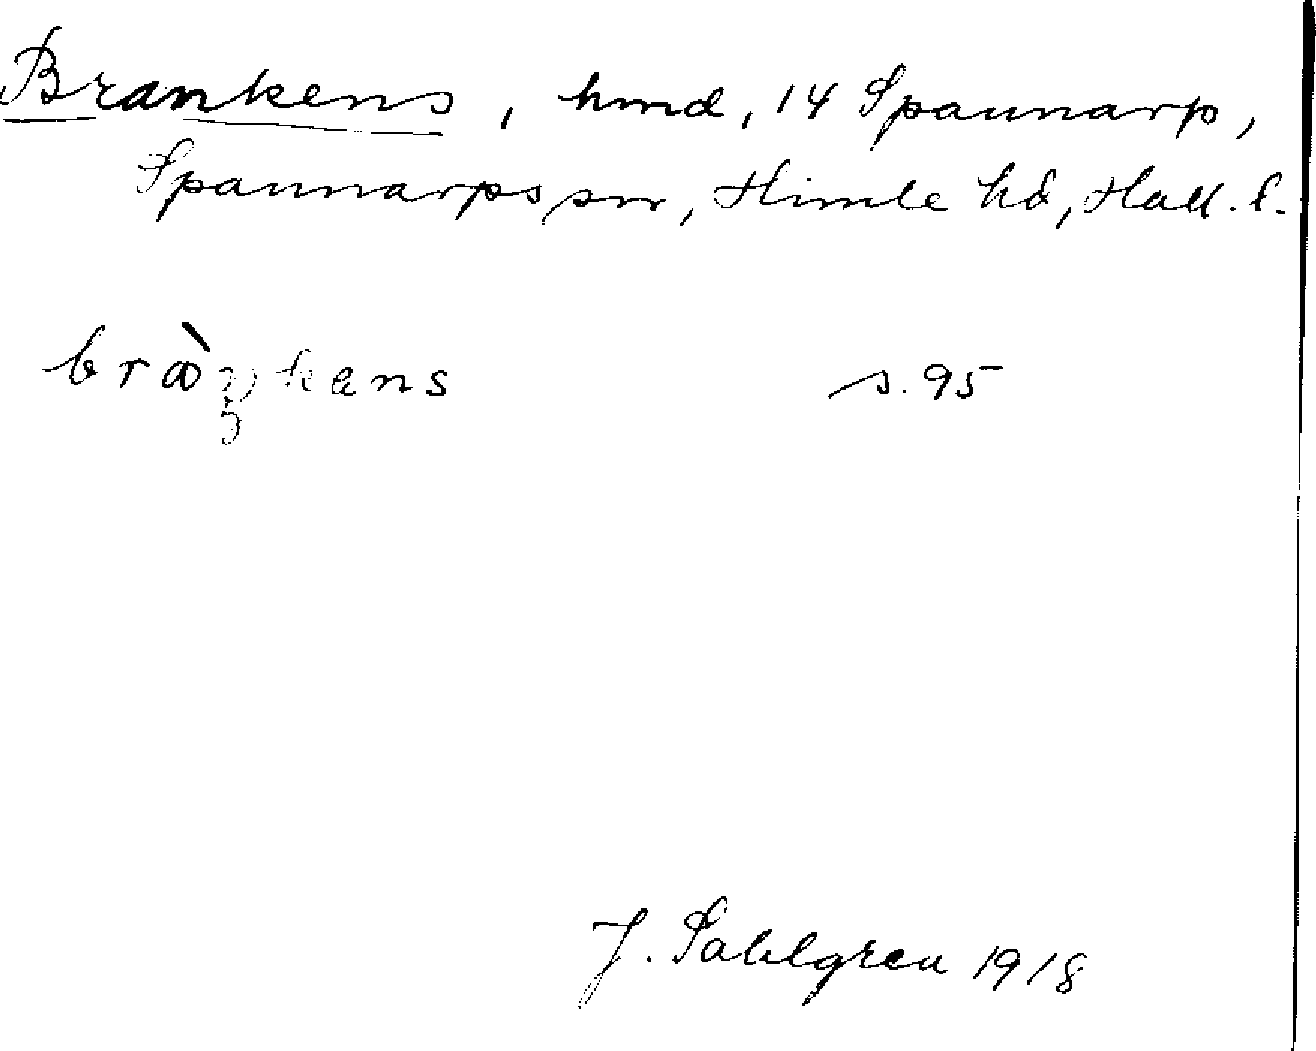 Brankens, hmd, 14 Spannarp,
Spannarps sn, Himle hd, Hall. l.
bràŋkens s. 95
J. Sahlgren 1918